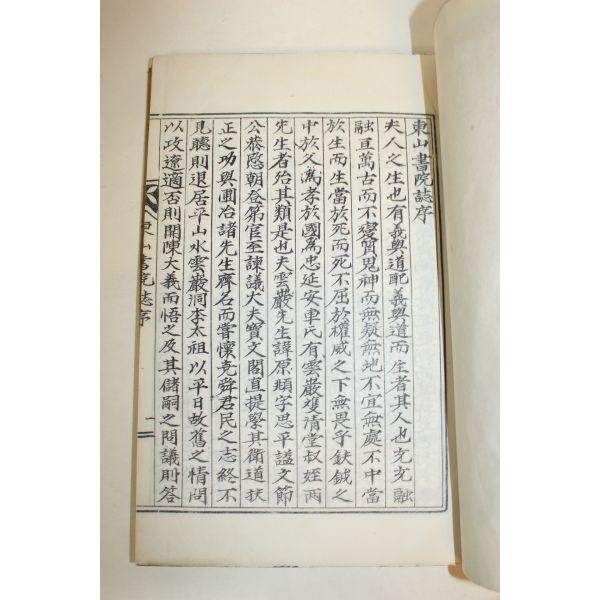 東山書院誌序
夫人之生也有義與道配義與道而生者其人也光光融
融亘萬古而不變質鬼神而無疑無地不宜無處不中當
於生而生當於死而死不屈於權威之下無畏乎鈇鉞之
中於父爲孝於國爲忠延安車氏有雲巖雙清堂叔姪兩
先生者殆其類是也夫雲巖先生諱原頫字思平謚文節
公恭愍朝登第官至諫議大夫寶文閣直提學其衛道扶
正之功與圃冶諸先生齊名而嘗懷堯舜君民之志終不
見聽則退居平山水雲巖洞李太祖以平日故舊之情問
以政遼適否則開陳大義而悟之及其儲嗣之問議則答
東山書院誌序
一